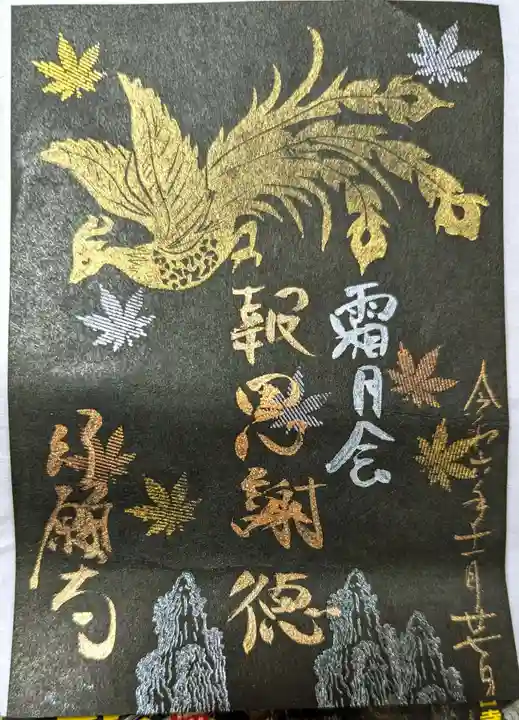 令和 年十一月廿 日
霜月会
報恩謝徳
願寺